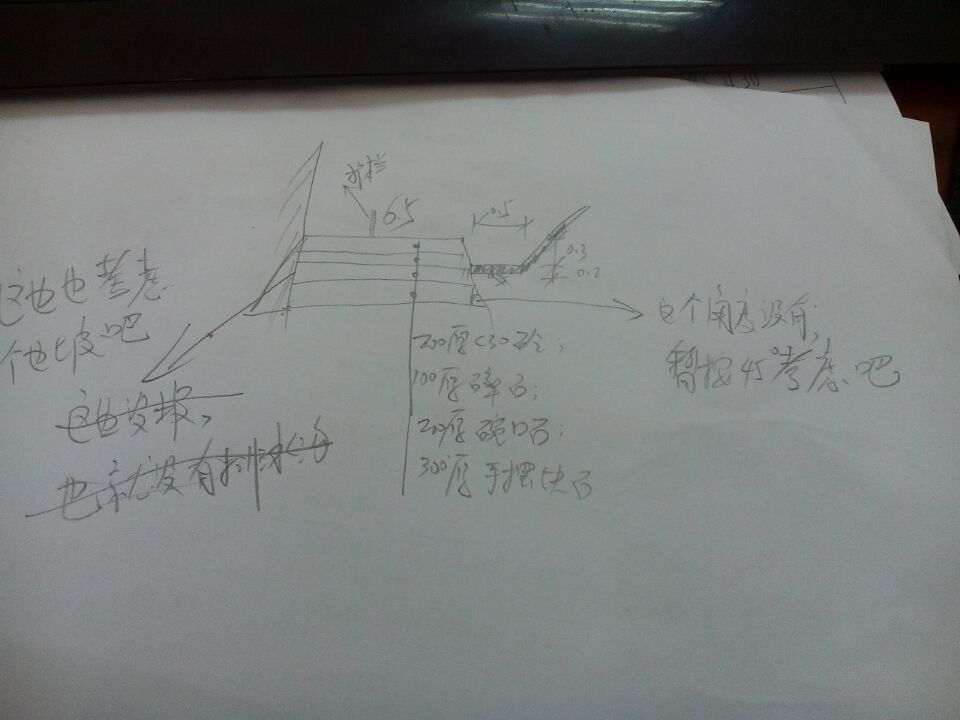 护栏
6.5
0.5
0.3
0.2
这也也考虑
个边坡吧
这也没坡，
也就没有排水沟
200厚C30砼；
100厚碎石；
200厚碗口石；
300厚手摆块石
这个角度没有，
暂按45°考虑吧